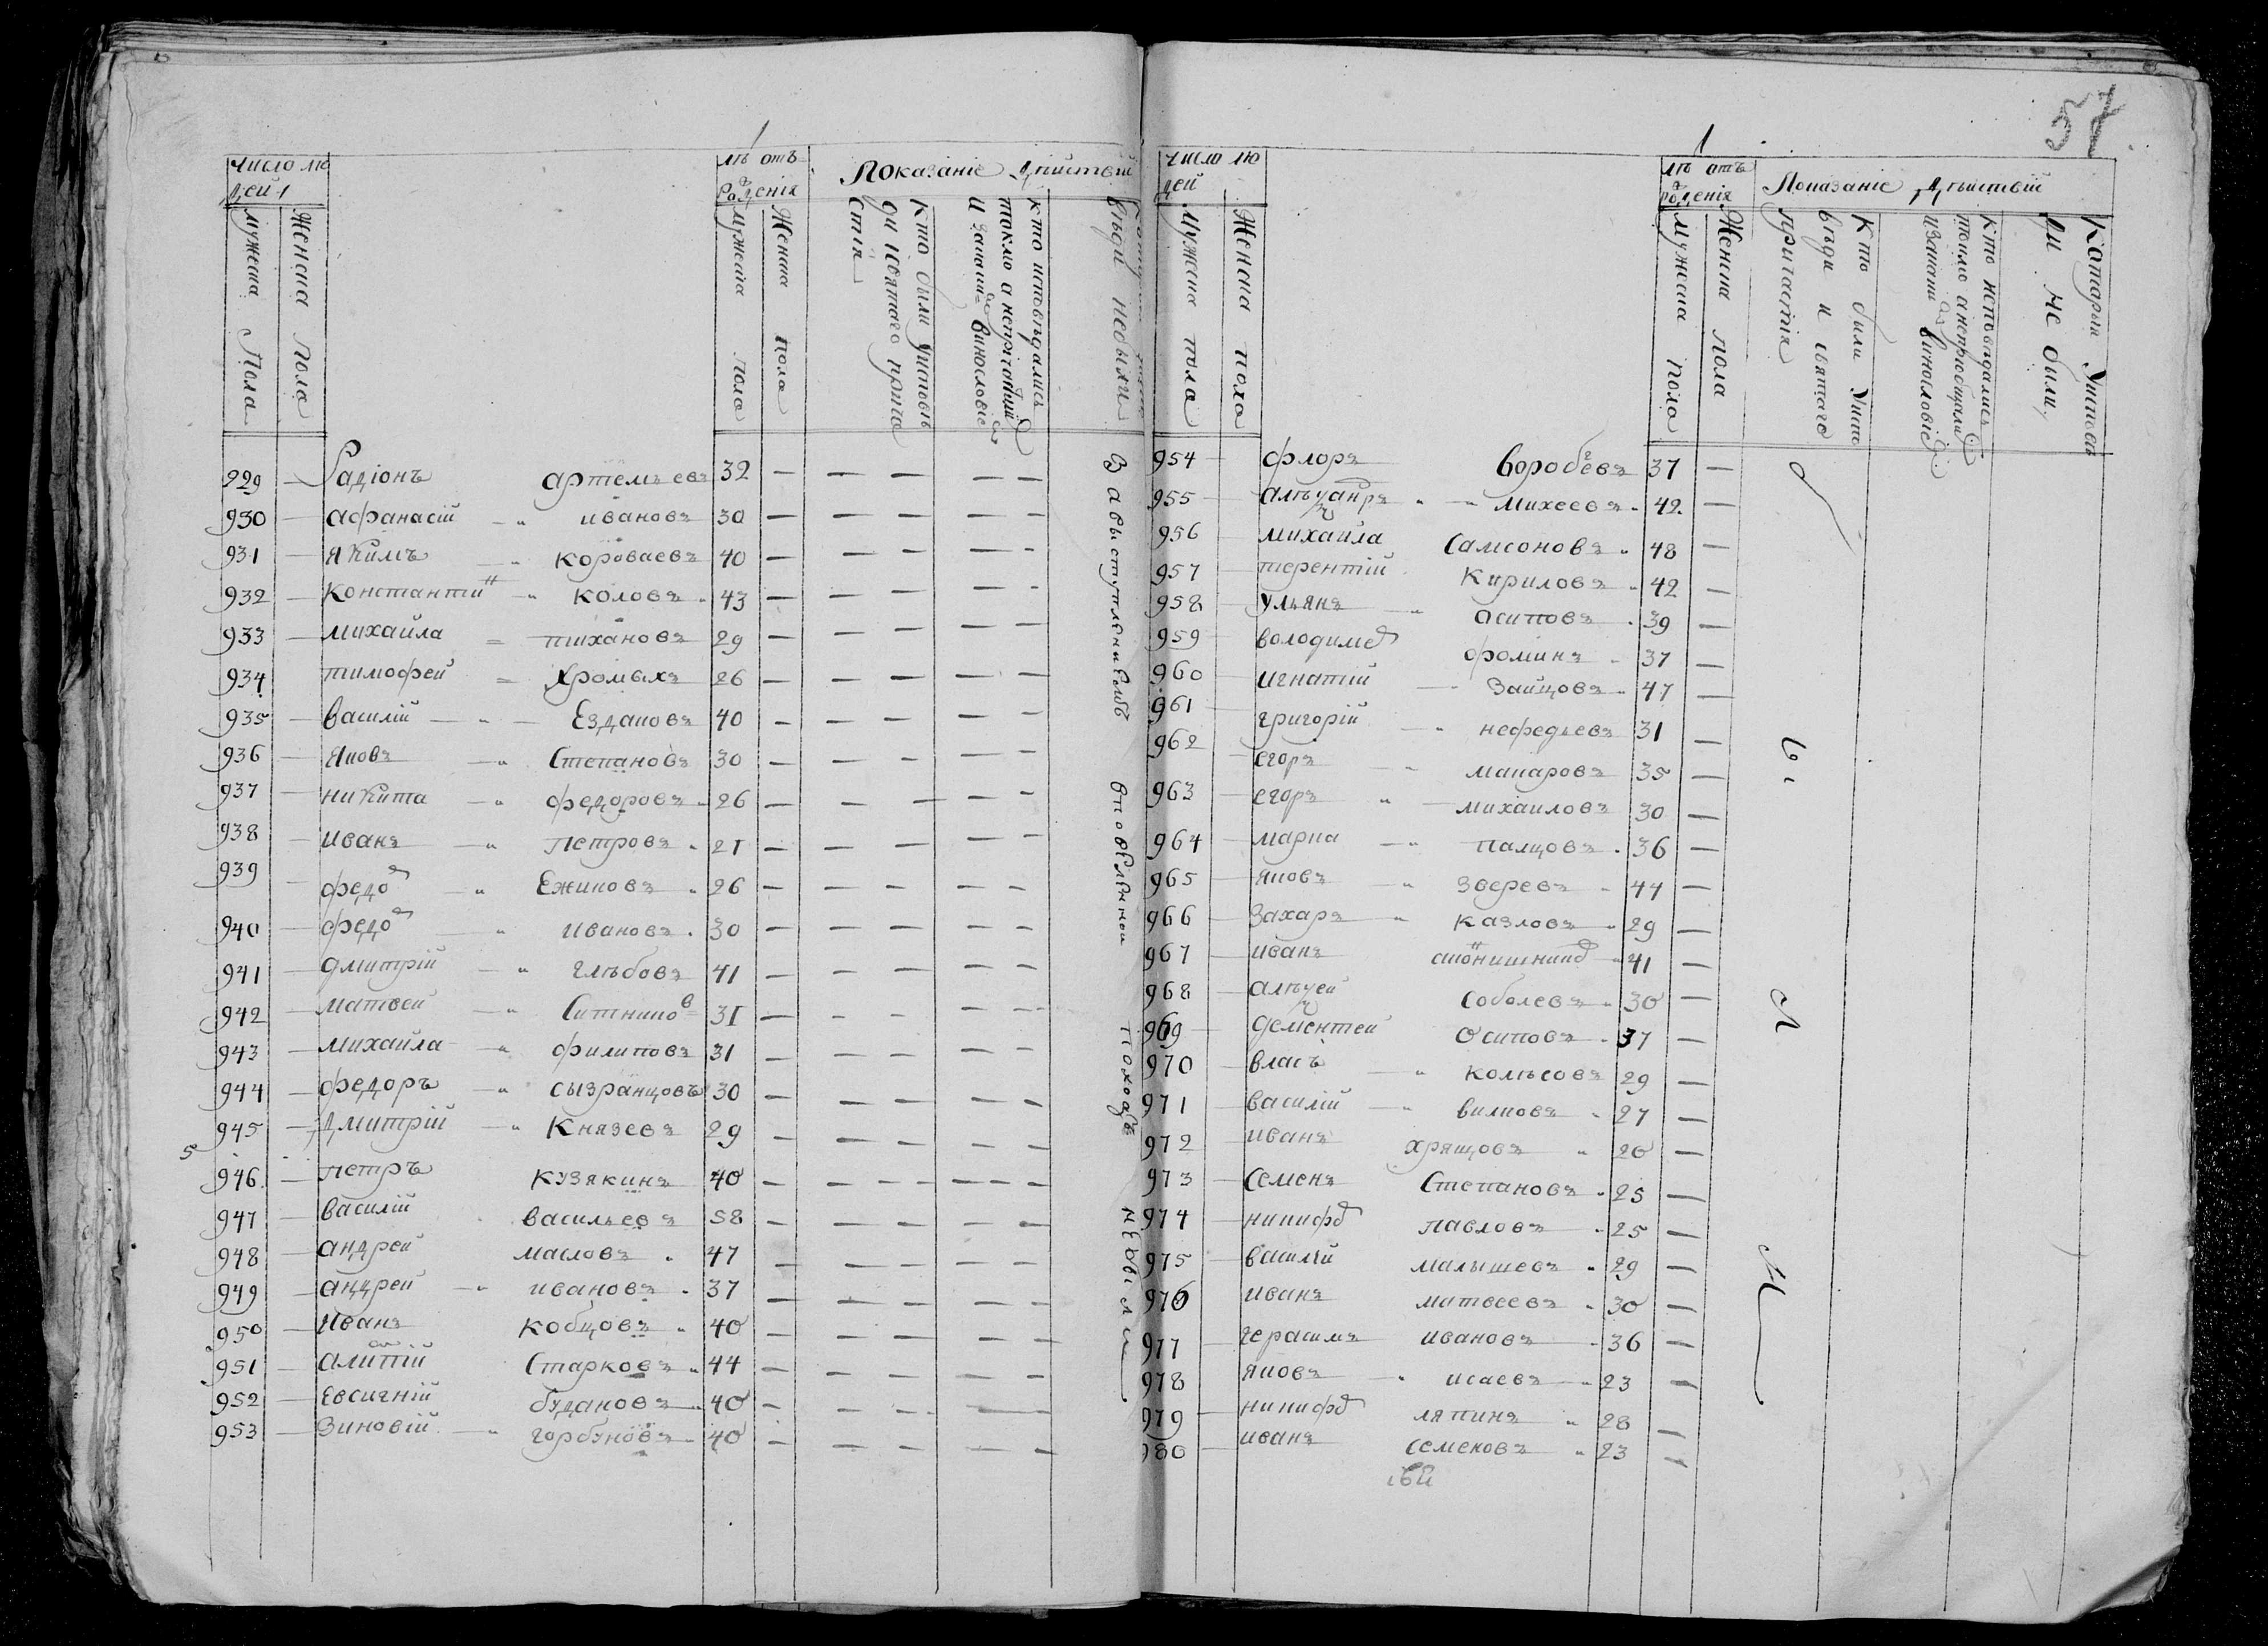 число лю
дей 1
мужеска Пола
Женска Пола
лѣ отъ
рожденія
мужеска пола
Женска пола
Показаніе Дѣйствій
Кто были у исповѣ
ди и святаго прича
стія
кто исповѣдались
токмо а непричащ
и закаким винословіе
929 — Радіонъ артемьевъ 32 — — — — —
930 — афанасій — " ивановъ 30 — — — — —
931 — якимъ — " короваевъ 40 — — — — —
932 — константинъ — " коловъ 43 — — — — —
933 — михаила = тихановъ 29 — — — — —
934 тимофей = Хромыхъ 26 — — — — —
935 — василій — " — Ездаковъ 40 — — — — —
936 — яковъ — " Степановъ 30 — — — — —
937 — никита — " федоровъ 26 — — — — —
938 — иванъ — " петровъ 21 — — — — —
939 — федор — " Ежиковъ 26 — — — — —
940 — федор — " ивановъ 30 — — — — —
941 — дмитрій — " глѣбовъ 41 — — — — —
942 — матвеи — " Ситников 31 — — — — —
943 — михаила — " филиповъ 31 — — — — —
944 — федоръ — " сызранцовъ 30 — — — — —
945 — Дмитрій — " Князевъ 29 — — — — —
5
946 — петръ кузякинъ 40 — — — — —
947 — василій васильевъ 58 — — — — —
948 — андреи масловъ 47 — — — — —
949 — андреи — " ивановъ 37 — — — — —
950 — Иванъ кобцовъ 40 — — — — —
951 — Старковъ 44 — — — — —
952 — Евсигній будановъ 40 — — — — —
953 — Зиновій — " горбуновъ 40 — — — — —
Завыступлениемъ вповѣленной походъ небыли
57
1
число лю
дей
мужеска пола
Женска пола
лѣ отъ
рожденія
мужеска пола
Женска пола
Показаніе Дѣйствій
Кто были у испо
вѣди и святаго
причастія
кто исповѣдались
токмо а непріобщали
изакаким винословіе
Которыя У исповѣ
ди не были
954 — флоръ воробьевъ 37 —
955 — алѣѯандръ " — михеевъ 42 —
956 — михаила Самсоновъ 48 —
957 — терентій Кириловъ 42 —
958 — ульянъ — " осиповъ 39 —
959 — володимер фоминъ 37 —
960 — игнатій — Зайцовъ 47 —
961 — григорій — " нефедьевъ 31 —
962 — егоръ — " макаровъ 35 —
963 — егоръ " михаиловъ 30 —
964 — марка — " палцовъ 36 —
965 — яковъ — " зверевъ 44 —
966 — Захаръ — " казловъ 29 —
967 — иванъ 41 —
968 — алѣѯеи Соболевъ 30 —
969 — дементеи Осиповъ 37 —
970 — власъ — " колѣсовъ 29 —
971 — василій — " вилковъ 27 —
972 — иванъ хрящовъ 20 —
973 — Семенъ Степановъ 25 —
974 — никифор павловъ 25 —
975 — василій малышевъ 29 —
976 — иванъ матвеевъ 30 —
977 — герасимъ ивановъ 36 —
978 — яковъ — " исаевъ 23 —
979 — никифор ляпинъ 28 —
980 — иванъ семеновъ 23 —